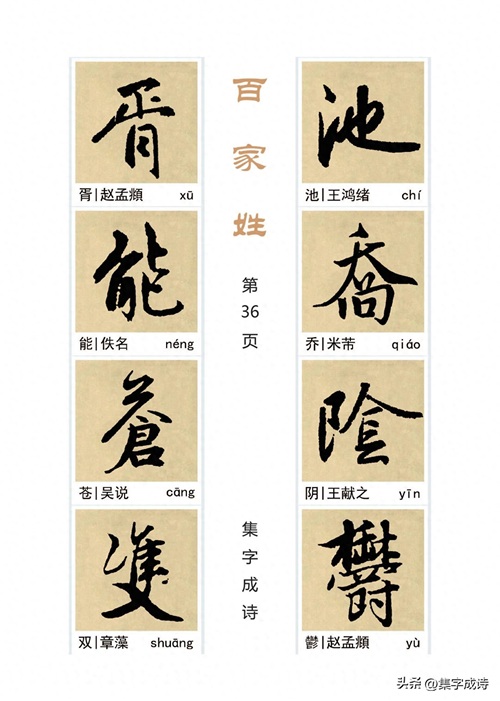 百家姓
第36页
池
池|王鸿绪 chí
喬
乔|米芾 qiáo
陰
阴|王献之 yīn
鬱
鬱|赵孟頫 yù
胥
胥|赵孟頫 xū
能
能|佚名 néng
蒼
苍|吴说 cāng
雙
双|章藻 shuāng
集字成诗
头条 @集字成诗